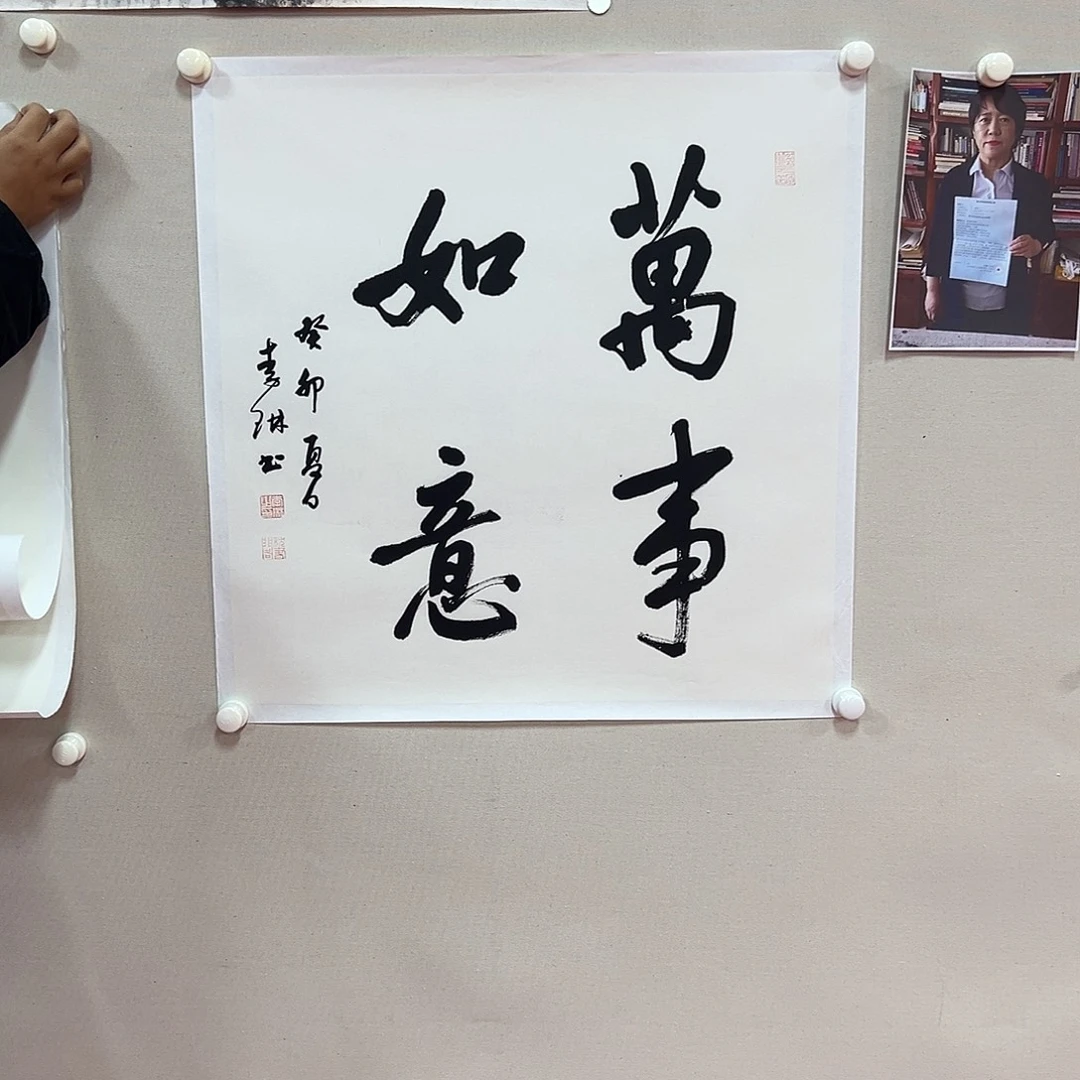 萬事
如意
癸卯夏日
李琳书